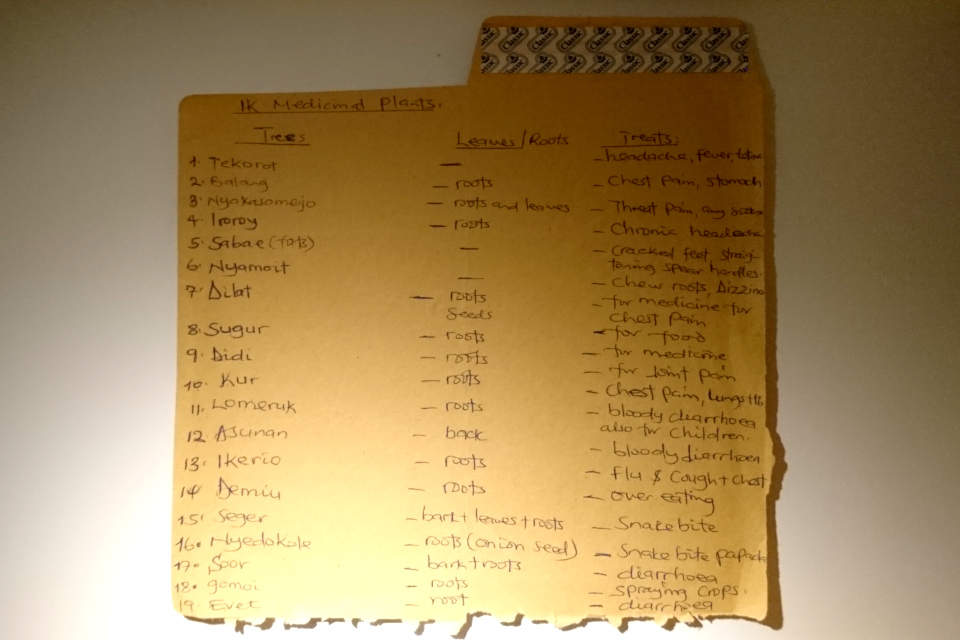 Classic Classic Classic Classic Classic Classic Classic
IK Medicinal Plants.
Trees Leaves/Roots Treats:
1. Tekorot — – headache, fever,
2. Balang – roots – Chest Pain, stomach
3. Nyakasomejo – roots and leaves – Threst Pain, any
4. Iroroy – roots – Chronic headache
5. Sabae — – Cracked feet, straigh-
tening spear handles.
6. Nyamoit — – Chew roots, Dizzine
7. Dilat – roots – for medicine for
Seeds Chest Pain
8. Sugur – roots – for food
9. Didi – roots – for medicine
10. Kur – roots – for Joint Pain
11. Lomeruk – roots – Chest Pain, Lungs
12. Asunan – back – bloody diarrhoea
also for Children.
13. Ikerio – roots – bloody diarrhoea
14 Demiu – roots – flu & Cough + Chest
– over eating
15. Seger – bark + leaves + roots – Snake bite
16. Nyedokole – roots (onion seed) – Snake bite
17. Soor – bark + roots – diarrhoea
18. gomoi – roots – spraying crops.
19. Evet – root – diarrhoea